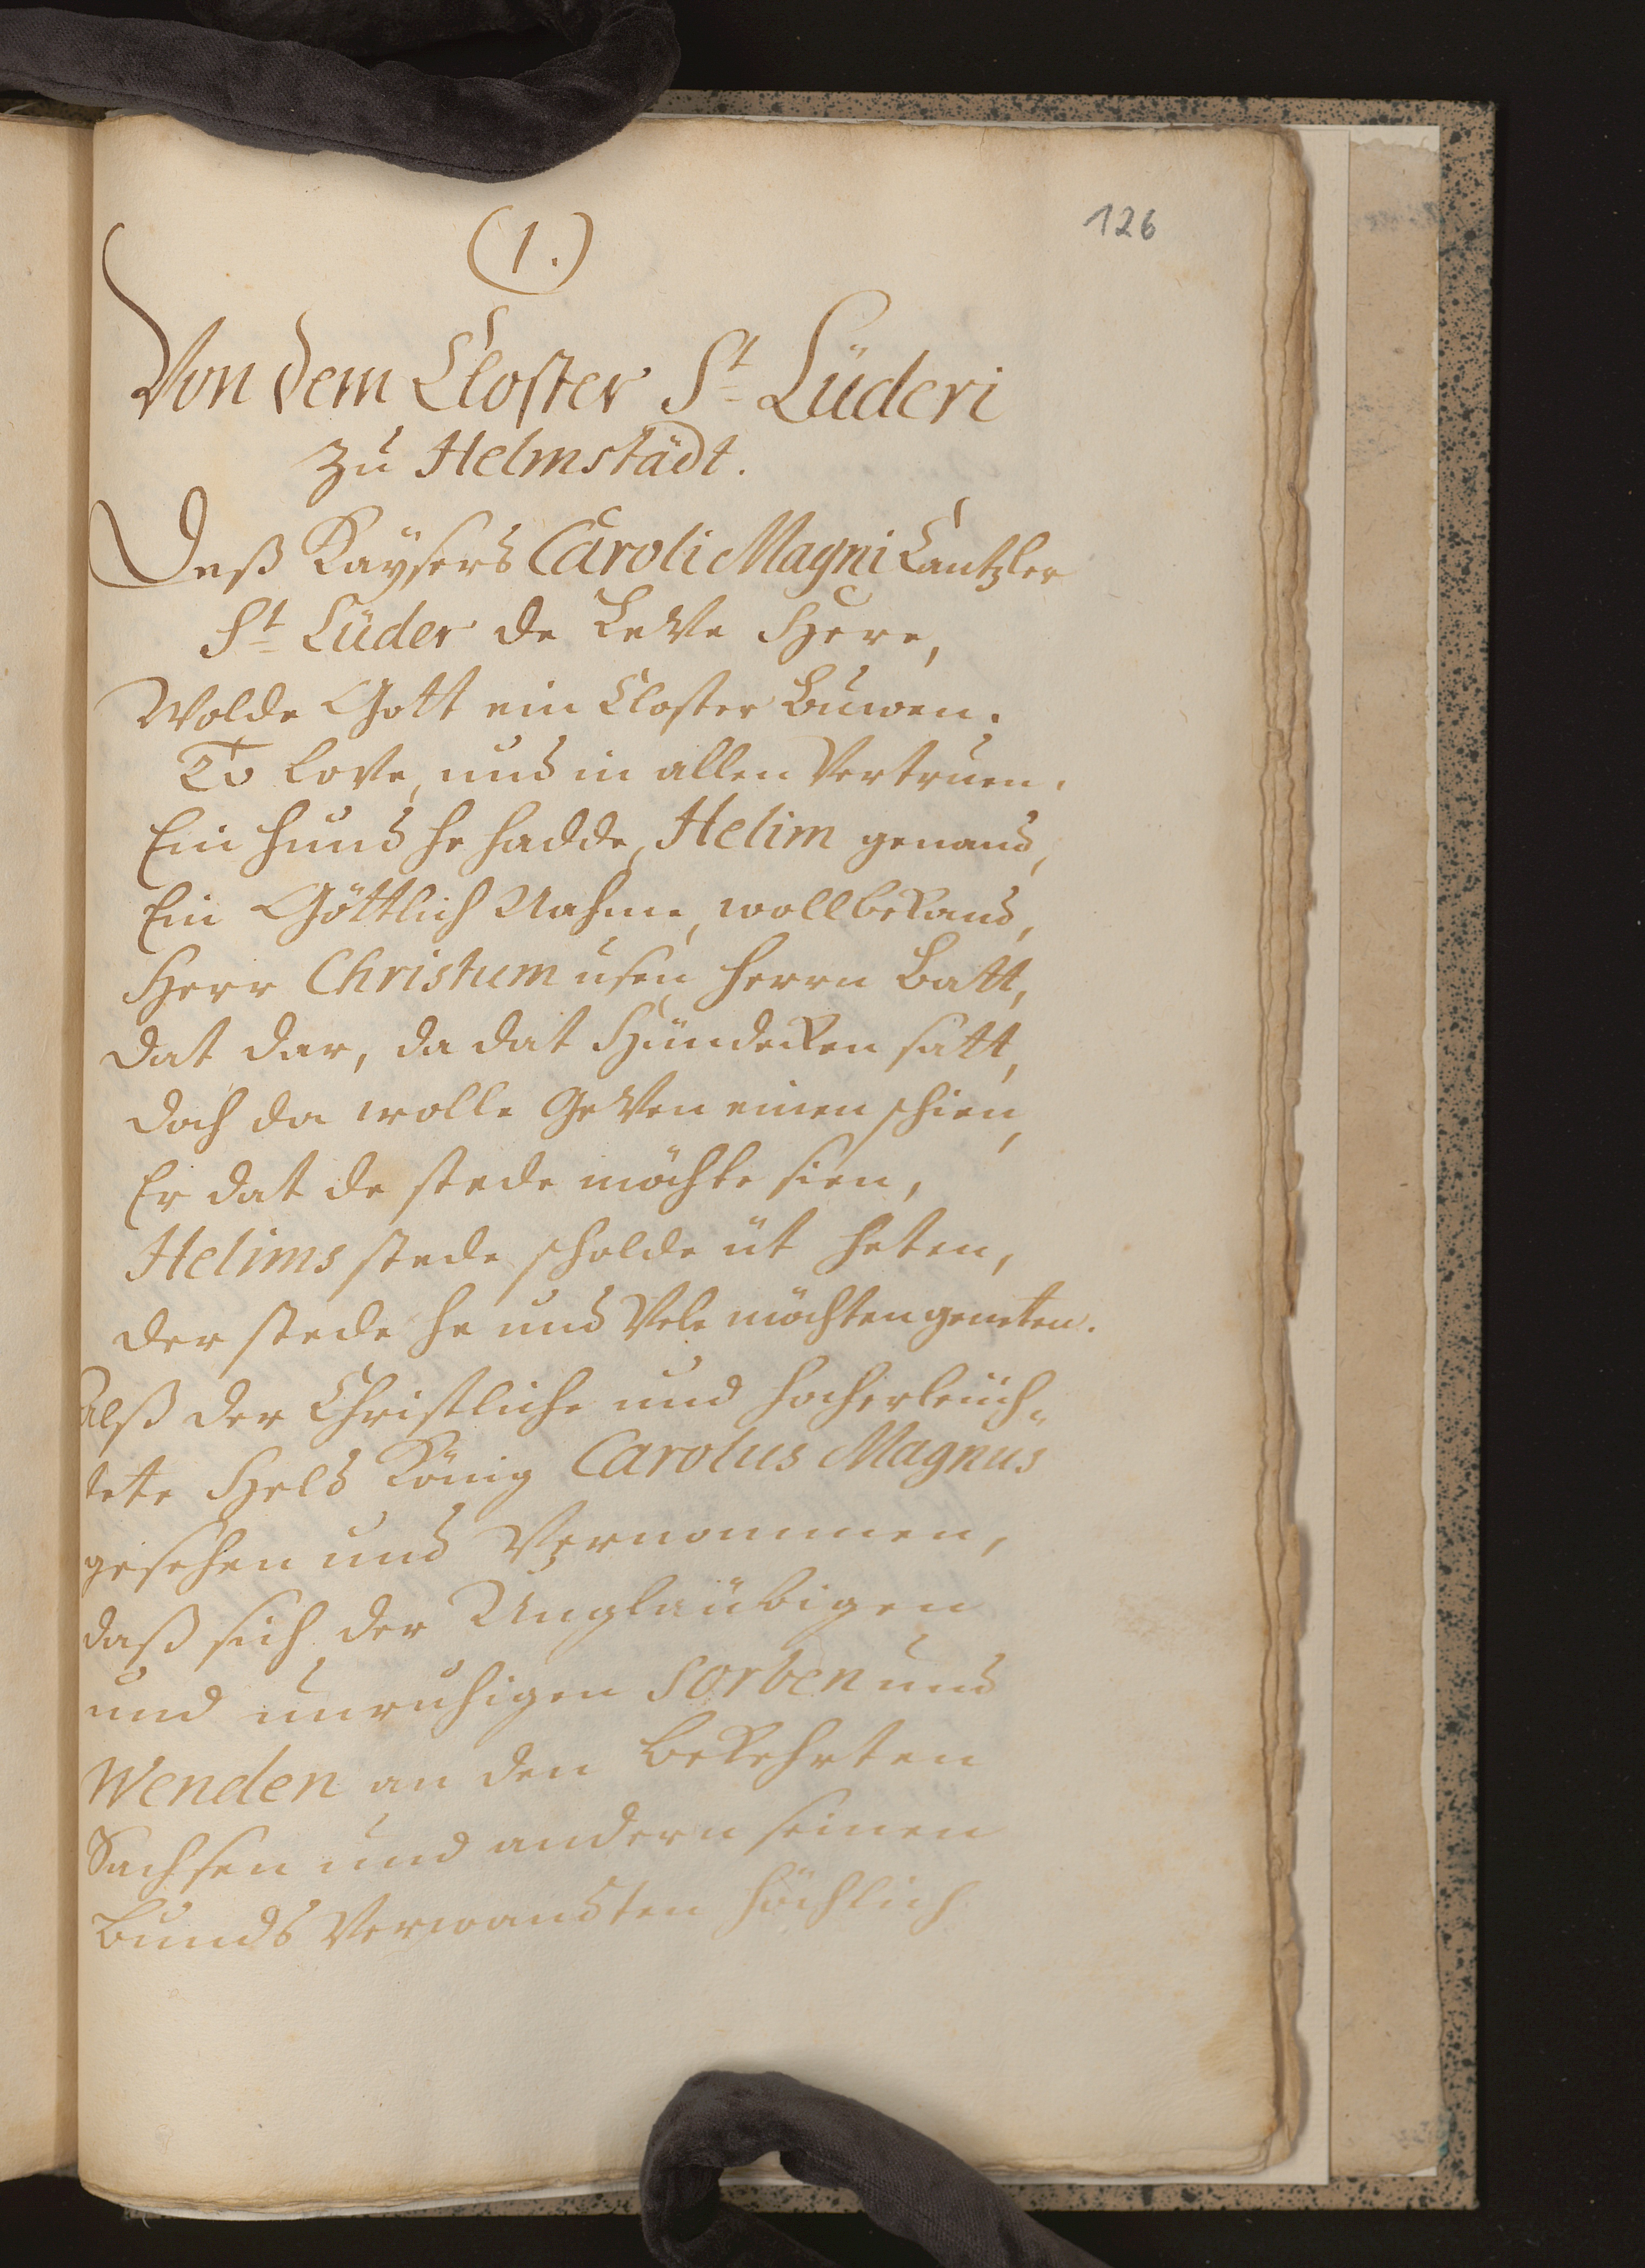 126
(1.)
Von dem Closter St Lüderi
zu Helmstädt.
Deß Kaysers Caroli Magni Cantzler
St Lüder de Leve Here,
Wolde Gott ein Closter buwen.
To love, und in allen Vertruen.
Ein Hund he hadde, Helim genand,
Ein Göttlich Nahme, woll bekand,
Herr Christum usen Herrn batt,
dat dar, da dat Hündeken satt,
doch da wolle geven einen schien,
Er dat de stede möchte sien,
Helims stede scholde üt heten,
der stede he und Vele möchten geneten.
Alß der Christliche und hocherleuch=
tete Held König Carolus Magnus
gesehen und Vernommen,
daß sich der Ungläubigen
und unruhigen Sorben und
Wenden an den bekehrten
Sachsen und andern seinen
Bunds Verwandten höchlich